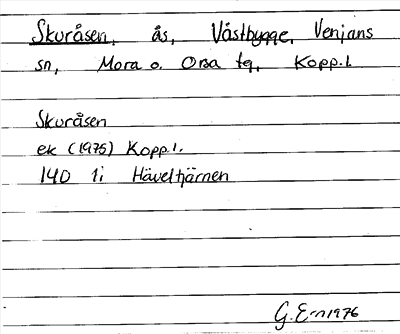 Skuråsen, ås, Västbygge, Venjans
sn, Mora o. Orsa tg, Kopp.l.
Skuråsen
ek (1975) Kopp.l.
14D 1i Häveltjärnen
G. E-n 1976